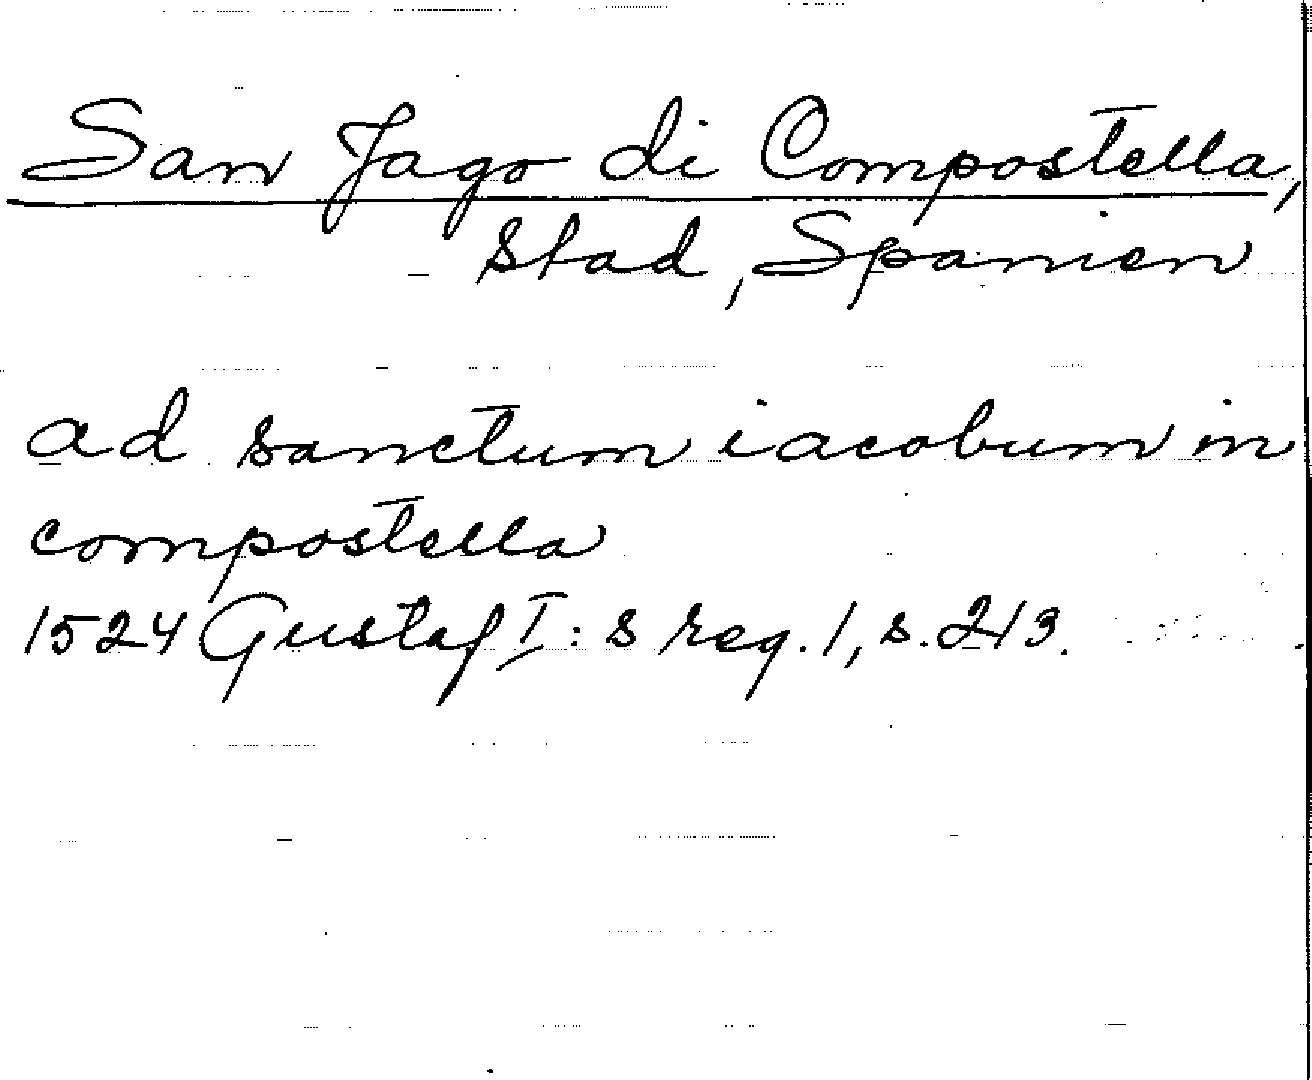 San Jago di Compostella,
stad, Spanien
ad sanctum iacobum in
compostella
1524 Gustaf I:s reg. 1, s. 213.